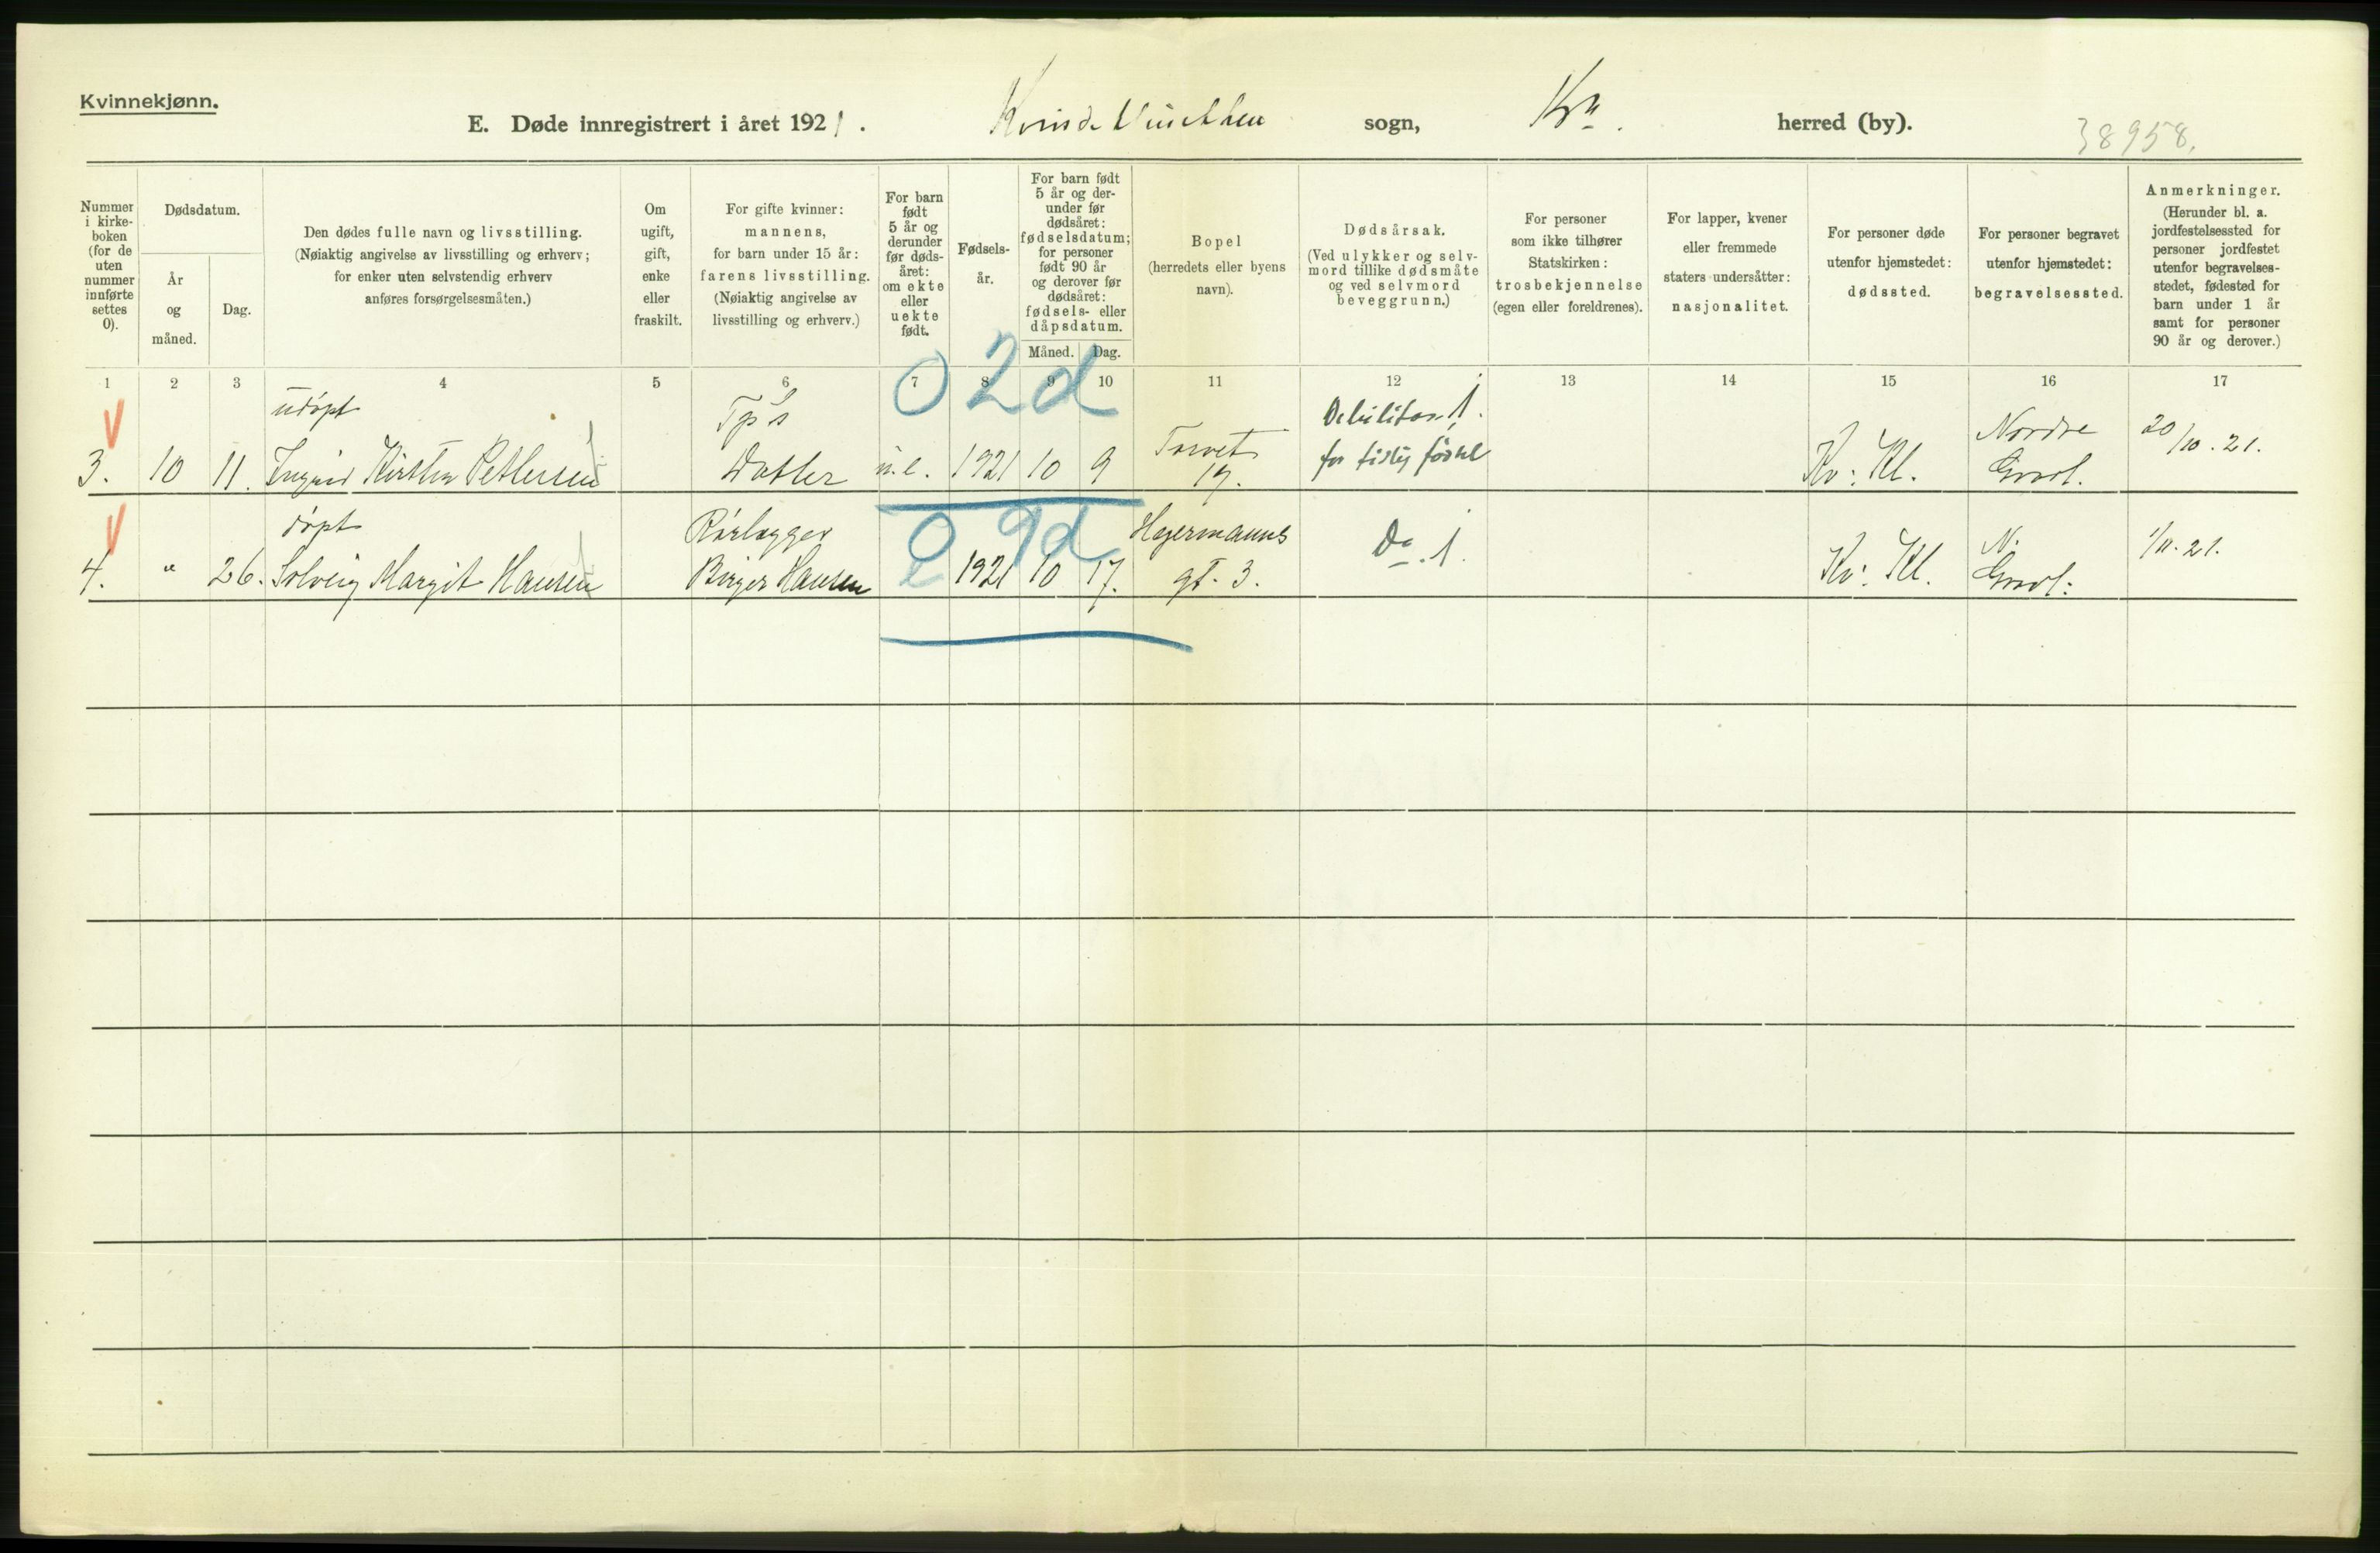 Kvinnekjønn.
E. Døde innregistrert i året 1921. sogn, Krª. herred (by).
38958.
Nummer i kirke-boken (for de uten nummer innførte settes 0).
Dødsdatum.
År og måned.
Dag.
Den dødes fulle navn og livsstilling.
(Nøiaktig angivelse av livsstilling og erhverv;
for enker uten selvstendig erhverv
anføres forsørgelsesmåten.)
Om
ugift,
gift,
enke
eller
fraskilt.
For gifte kvinner:
mannens,
for barn under 15 år:
farens livsstilling.
(Nøiaktig angivelse av
livsstilling og erhverv.)
For barn
født
5 år og
derunder
før døds-
året:
om ekte
eller
uekte
født.
Fødsels-
år.
For barn født
5 år og der-
under før
dødsåret:
fødselsdatum;
for personer
født 90 år
og derover før
dødsåret:
fødsels- eller
dåpsdatum.
Måned. Dag.
Bopel
(herredets eller byens
navn).
Dødsårsak.
(Ved ulykker og selv-
mord tillike dødsmåte
og ved selvmord
beveggrunn.)
For personer
som ikke tilhører
Statskirken:
trosbekjennelse
(egen eller foreldrenes).
For lapper, kvener
eller fremmede
staters undersåtter:
nasjonalitet.
For personer døde
utenfor hjemstedet:
dødssted.
For personer begravet
utenfor hjemstedet:
begravelsessted.
Anmerkninger.
(Herunder bl. a.
jordfestelsessted for
personer jordfestet
utenfor begravelses-
stedet, fødested for
barn under 1 år
samt for personer
90 år og derover.)
1 2 3 4 5 6 7 8 9 10 11 12 13 14 15 16 17
0 2d
udøpt
Tp's
Debilitas.
Nordre
20/10.21.
3. 10 11. Ingrid Kirsten Pettersen Datter u.e. 1921 10 9 Torvet 17. for tidlig født Kv: Kl. Gravl.
0 9d
døpt
Rørlægger
Hegermanns
Dº
N.
1/11.21.
4. " 26. Solveig Margit Hansen Birger Hansen e 1921 10 17. gt. 3. Kv: Kl. Gravl: